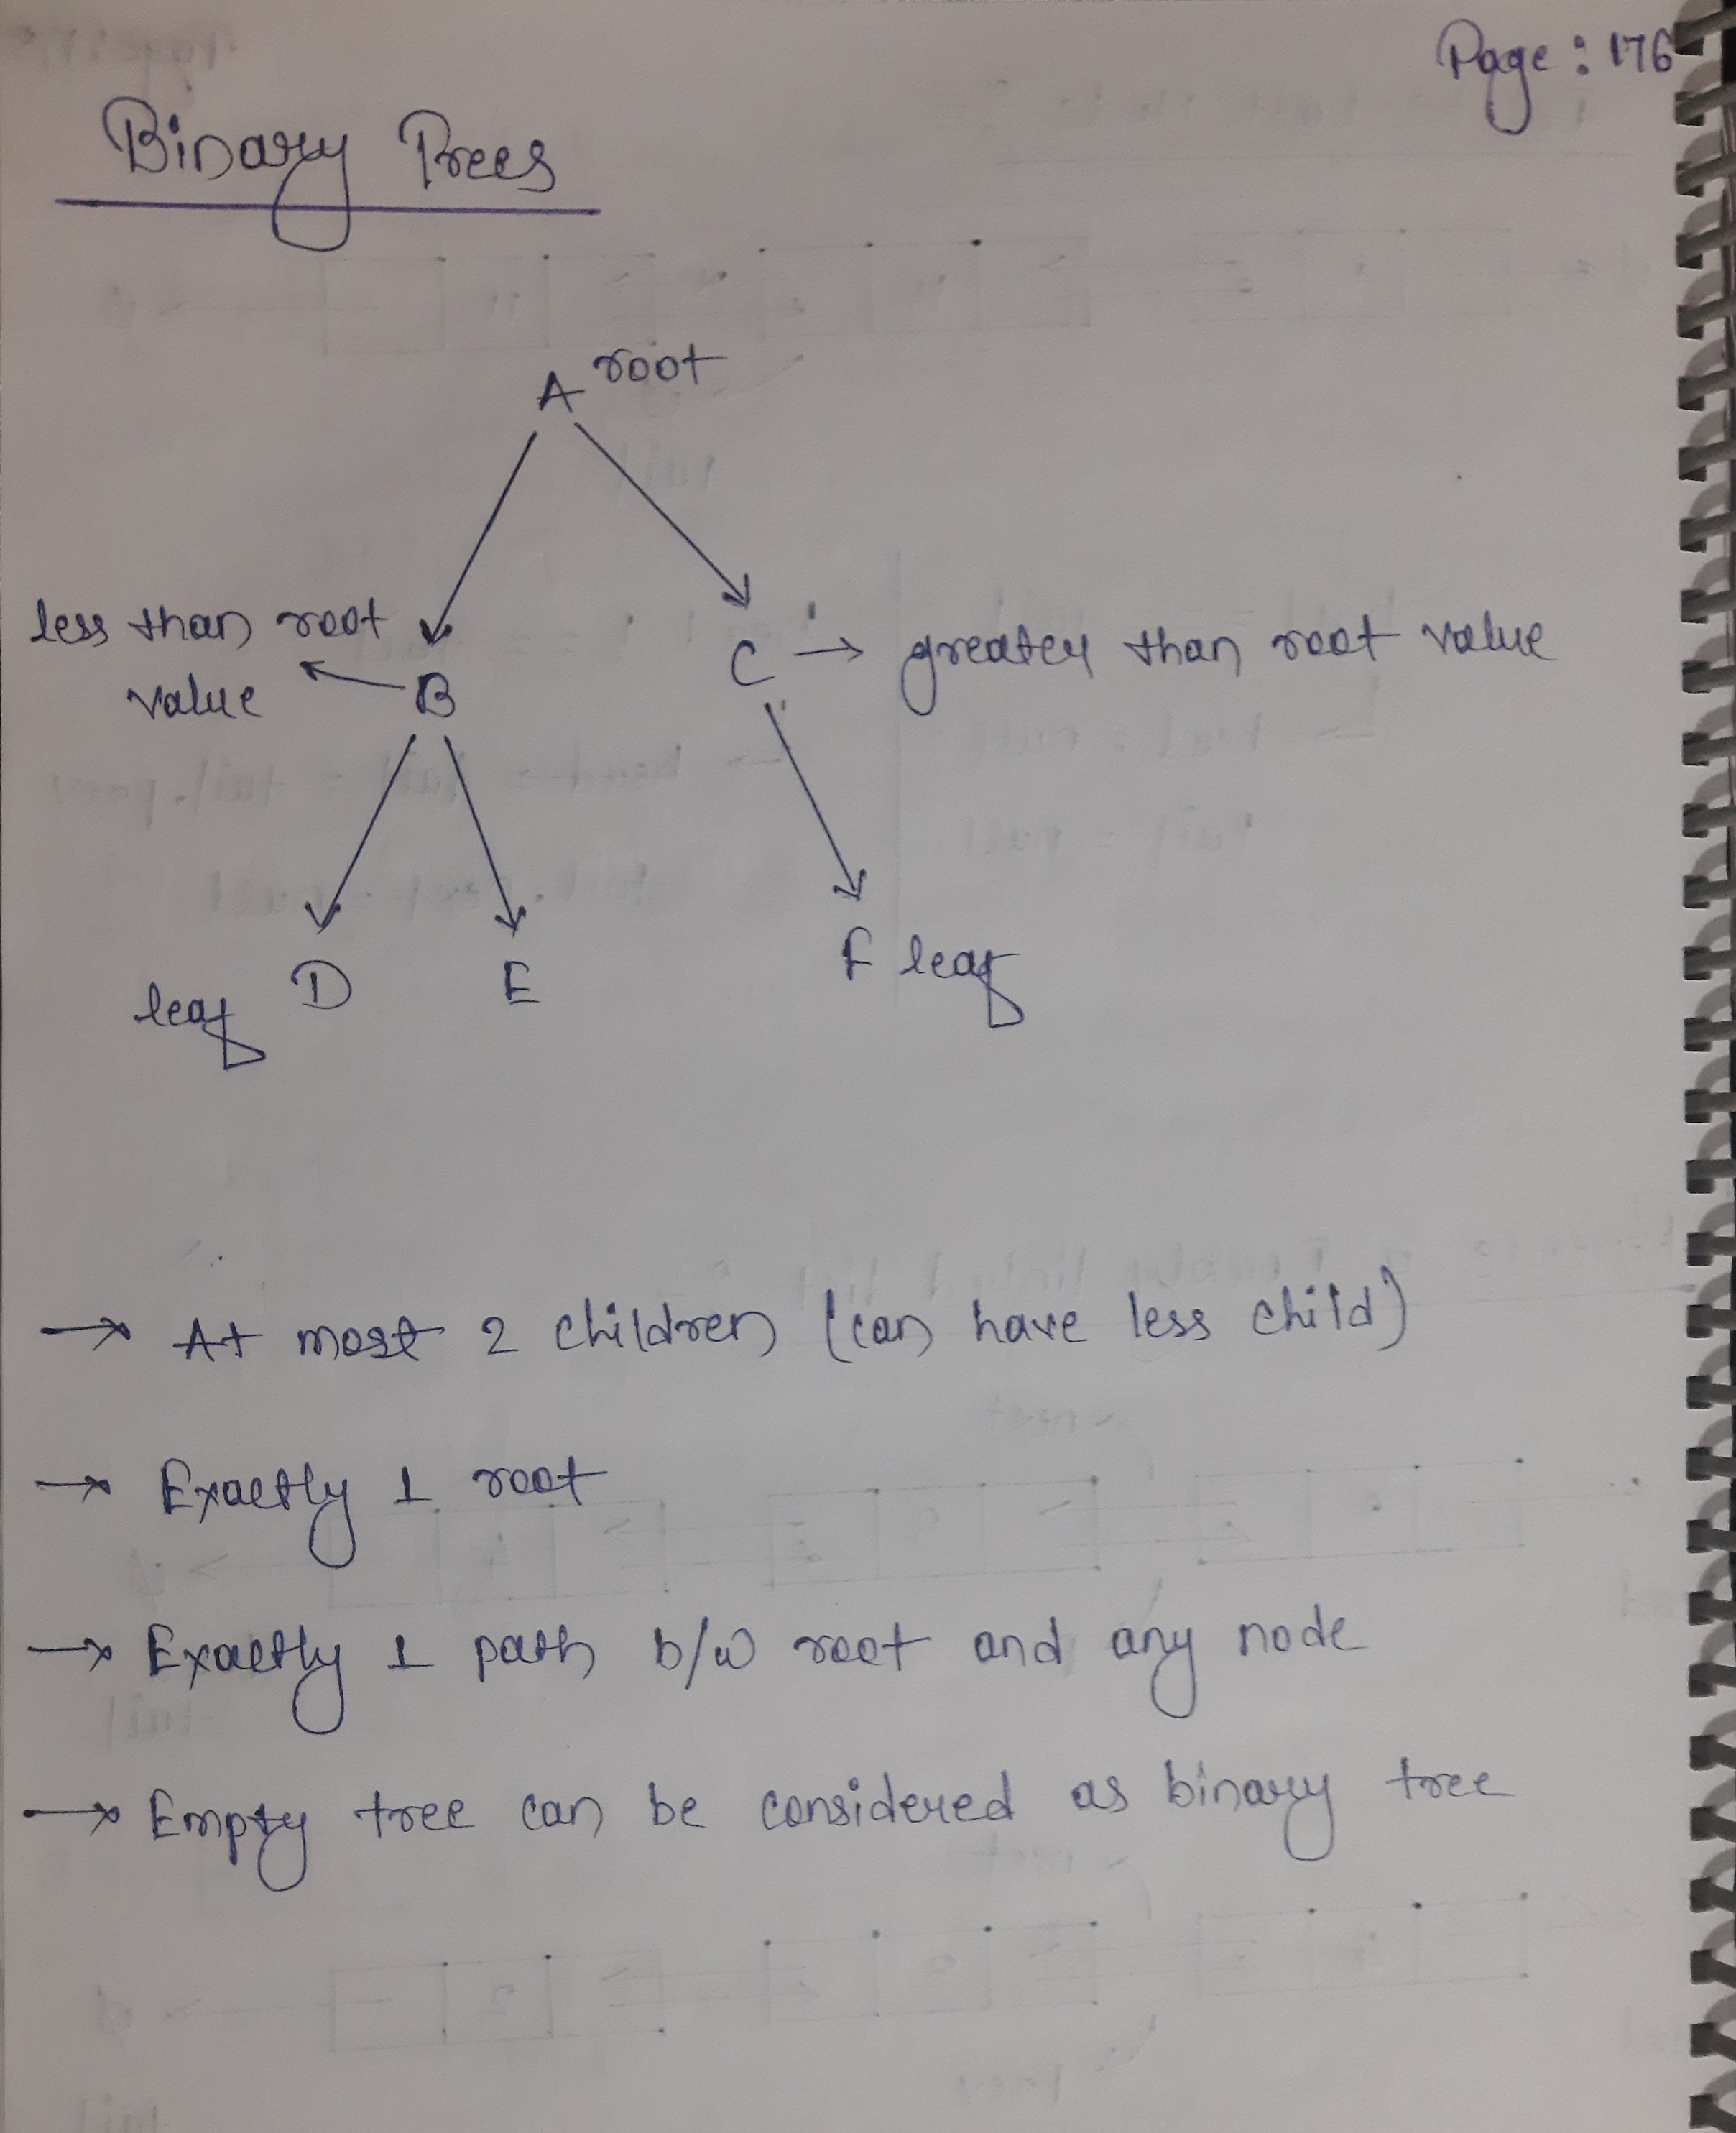 Page : 176
Binary Trees
A root
less than root
value
B
C → greater than root value
leaf D E F leaf
→ At most 2 children (can have less child)
→ Exactly 1 root
→ Exactly 1 path b/w root and any node
→ Empty tree can be considered as binary tree